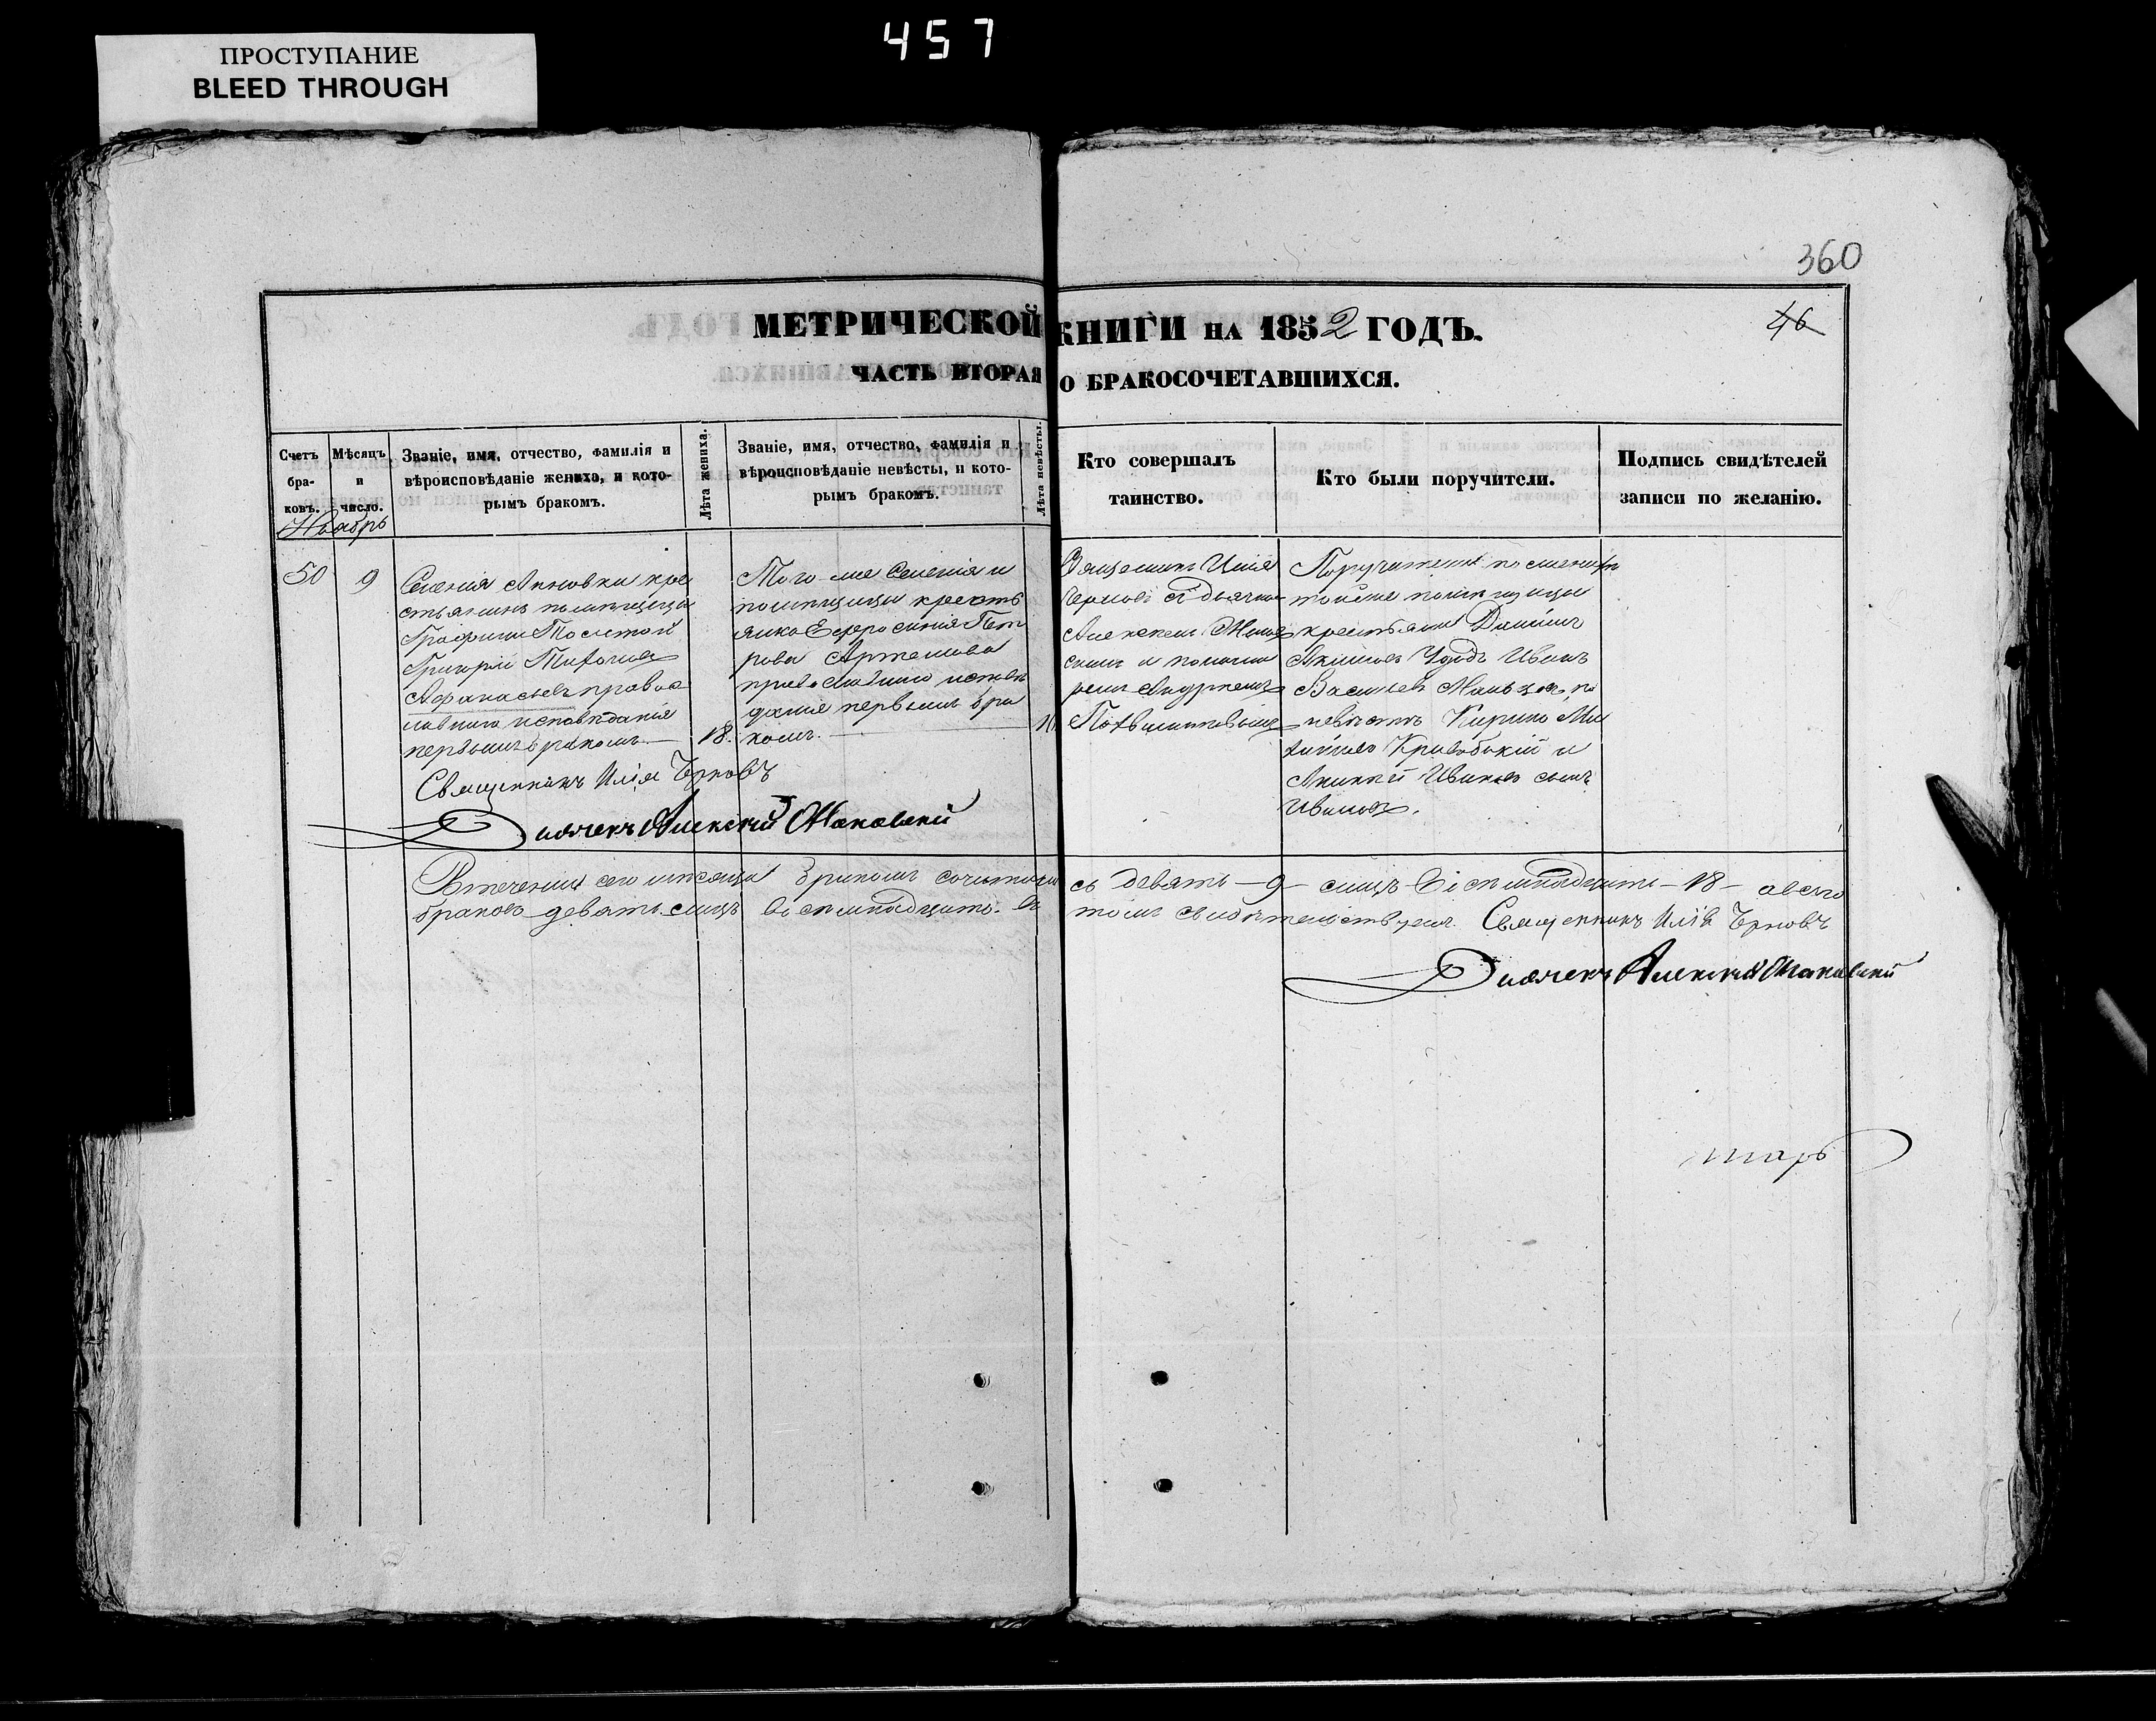 457
ПРОСТУПАНИЕ
BLEED THROUGH
360
МЕТРИЧЕСКОЙ КНИГИ НА 1852 ГОДЪ.
46
ЧАСТЬ ВТОРАЯ О БРАКОСОЧЕТАВШИХСЯ.
Счетъ бра-ковъ.
Мѣсяцъ и число.
Званіе, имя, отчество, фамилія и
вѣроисповѣданіе жениха, и кото-
рымъ бракомъ.
Лѣта жениха.
Званіе, имя, отчество, фамилія и
вѣроисповѣданіе невѣсты, и кото-
рымъ бракомъ.
Лѣта невѣсты.
Кто совершалъ
таинство.
Кто были поручители.
Подпись свидѣтелей
записи по желанію.
Ноябрь
50
9
Селенія Анновки кре
стьянинъ помѣщицы
Графини Толстой
Григорій Тихоновъ
Афанасьевъ правос
лавнаго исповѣданія
первымъ бракомъ.
18.
Того-же Селенія и
помѣщицы кресть
янка Ефросинія Пет
рова Артемова
православнаго исповѣ
данія первымъ бра
комъ.
Священникъ Илія
Черновъ съ дьячком
Алексѣемъ Манов
скимъ и понома
ремъ Андреемъ
Поручители по женихѣ
тойже помѣщицы
крестьяне Даніилъ
Акимовъ Удодъ Иванъ
Васильевъ по
невѣстѣ Кирило Ми
хайловъ и
Ивановъ сынъ
Ивановъ.
Священникъ Илія Черновъ
Дьячекъ Алексѣй Маковскій
Втеченіи сего мѣсяца бракомъ сочеталось девять — 9 — лицъ восемнадцать — 18 — а всего
браковъ девять лицъ восемнадцать. въ томъ свидѣтельствуемъ. Священникъ Илія Черновъ
Дьячекъ Алексѣй Маковскій